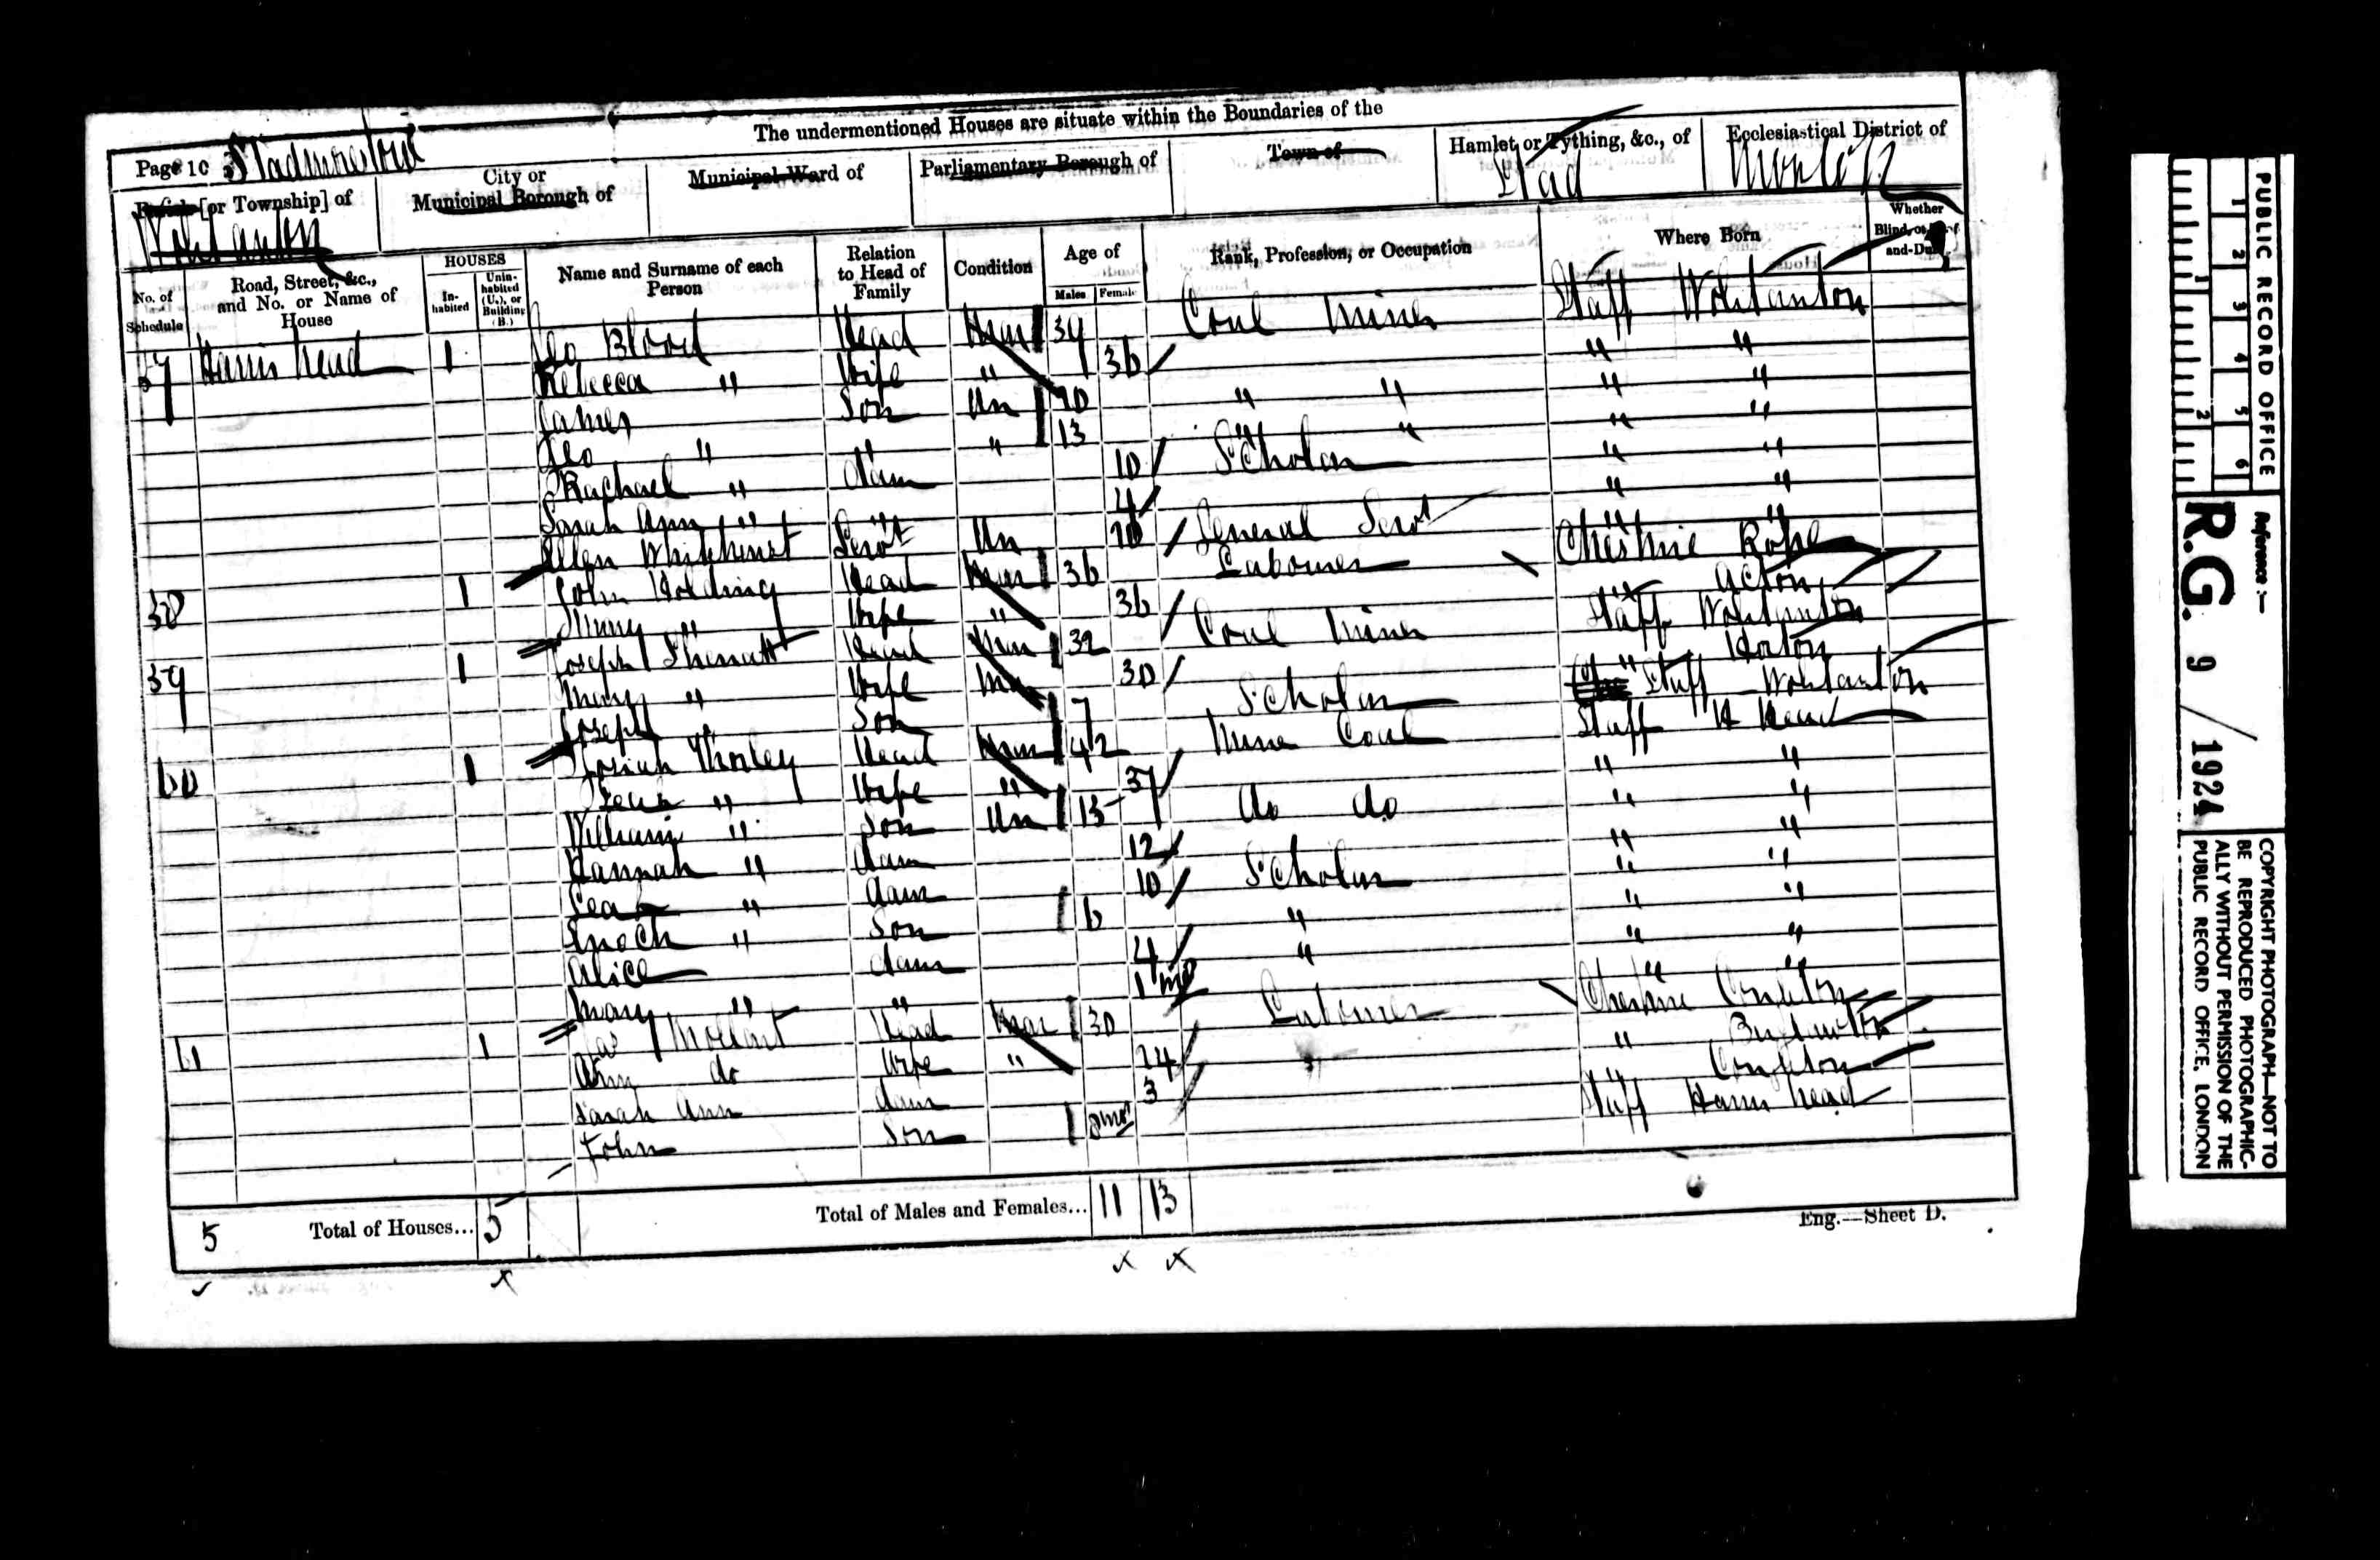 The undermentioned Houses are situate within the Boundaries of the
Page 10
Parish [or Township] of
Wolstanton
City or Municipal Borough of
Municipal Ward of
Parliamentary Borough of
Town of
Hamlet or Tything, &c., of
Ecclesiastical District of
No. of Schedule
Road, Street, &c., and No. or Name of House
HOUSES
In-habited
Unin-habited (U.), or Building (B.)
Name and Surname of each Person
Relation to Head of Family
Condition
Age of
Males
Females
Rank, Profession, or Occupation
Where Born
Whether Blind, or Deaf-and-Dumb
57 Harris head 1 Geo Blood Head Mar 39 Coal Miner Staff Wolstanton
Rebecca " Wife " 36 " "
James Son Un 20 " " " "
Geo " " " 13 " " " "
Rachael " daur 10 Scholar " "
Sarah Ann " " 4 " "
Ellen Whitehurst Servt Un 20 General Servt " "
58 1 John Holding Head Mar 36 Labourer Cheshire Rope
" Wife " 36 " Acton
59 1 Joseph Head Mar 32 Coal Miner Staff Wolstanton
Mary " Wife Mar 30 " Horton
Joseph " Son 7 Scholar Staff Wolstanton
60 1 Josiah Thorley Head Mar 42 Miner Coal Staff H Head
" Wife " 37 " "
William " Son Un 15 do do " "
Hannah " daur 12 " "
Leah " daur 10 Scholar " "
Enoch " Son 6 " " "
Alice daur 4 " " "
Mary " " 1 mo " "
61 1 Jas Head Mar 30 Labourer Cheshire Congleton
Ann do Wife " 24 "
Sarah Ann daur 3 " Congleton
John Son Staff Harris head
5 Total of Houses... 5
Total of Males and Females... 11 13
Eng.—Sheet D.
1 2 3 4 5 6
1 2
PUBLIC RECORD OFFICE
Reference :—
R.G. 9 / 1924
COPYRIGHT PHOTOGRAPH—NOT TO
BE REPRODUCED PHOTOGRAPHIC-
ALLY WITHOUT PERMISSION OF THE
PUBLIC RECORD OFFICE, LONDON